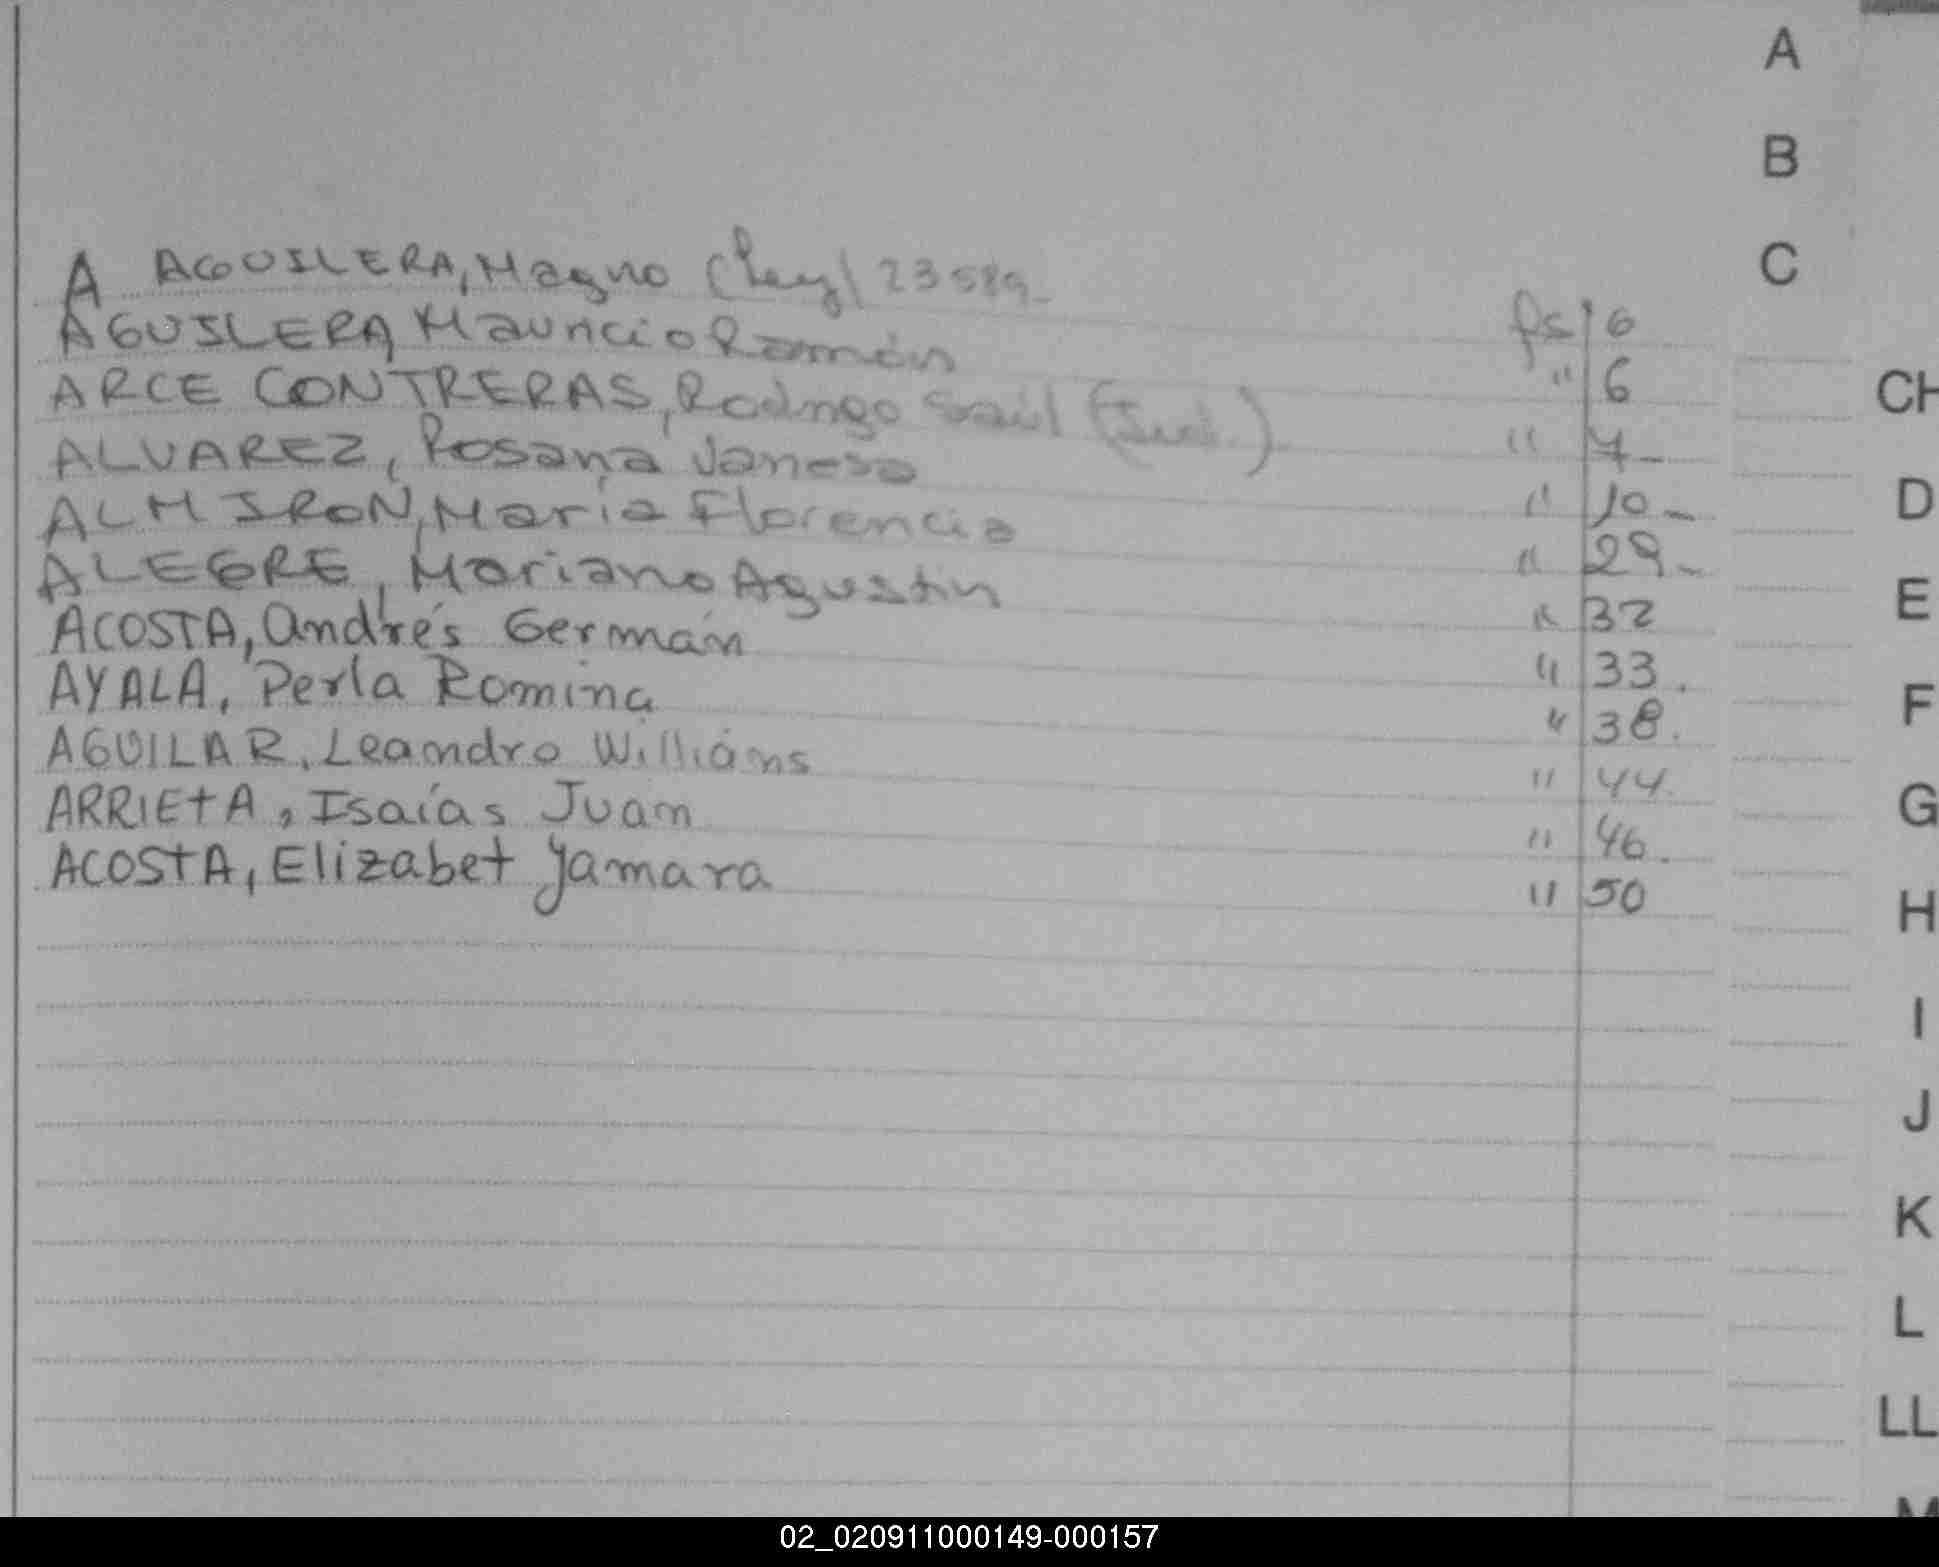 A AGUILERA, Magno (Ley 23589- fs 6
AGUILERA, Mauricio Ramón " 6
ARCE CONTRERAS, Rodrigo Saúl (Jud.) " 7-
ALVAREZ, Rosana Vanesa " 10-
ALMIRON, María Florencia " 29-
ALEGRE, Mariano Agustín " 32
ACOSTA, Andrés Germán " 33.
AYALA, Perla Romina " 38.
AGUILAR, Leandro Williams " 44
ARRIETA, Isaías Juan " 46.
ACOSTA, Elizabet Yamara " 50
A
B
C
CH
D
E
F
G
H
I
J
K
L
LL
M
02_020911000149-000157